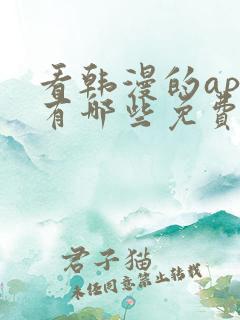 看韩漫的ap
有哪些免费
君子猫
未经同意禁止转载